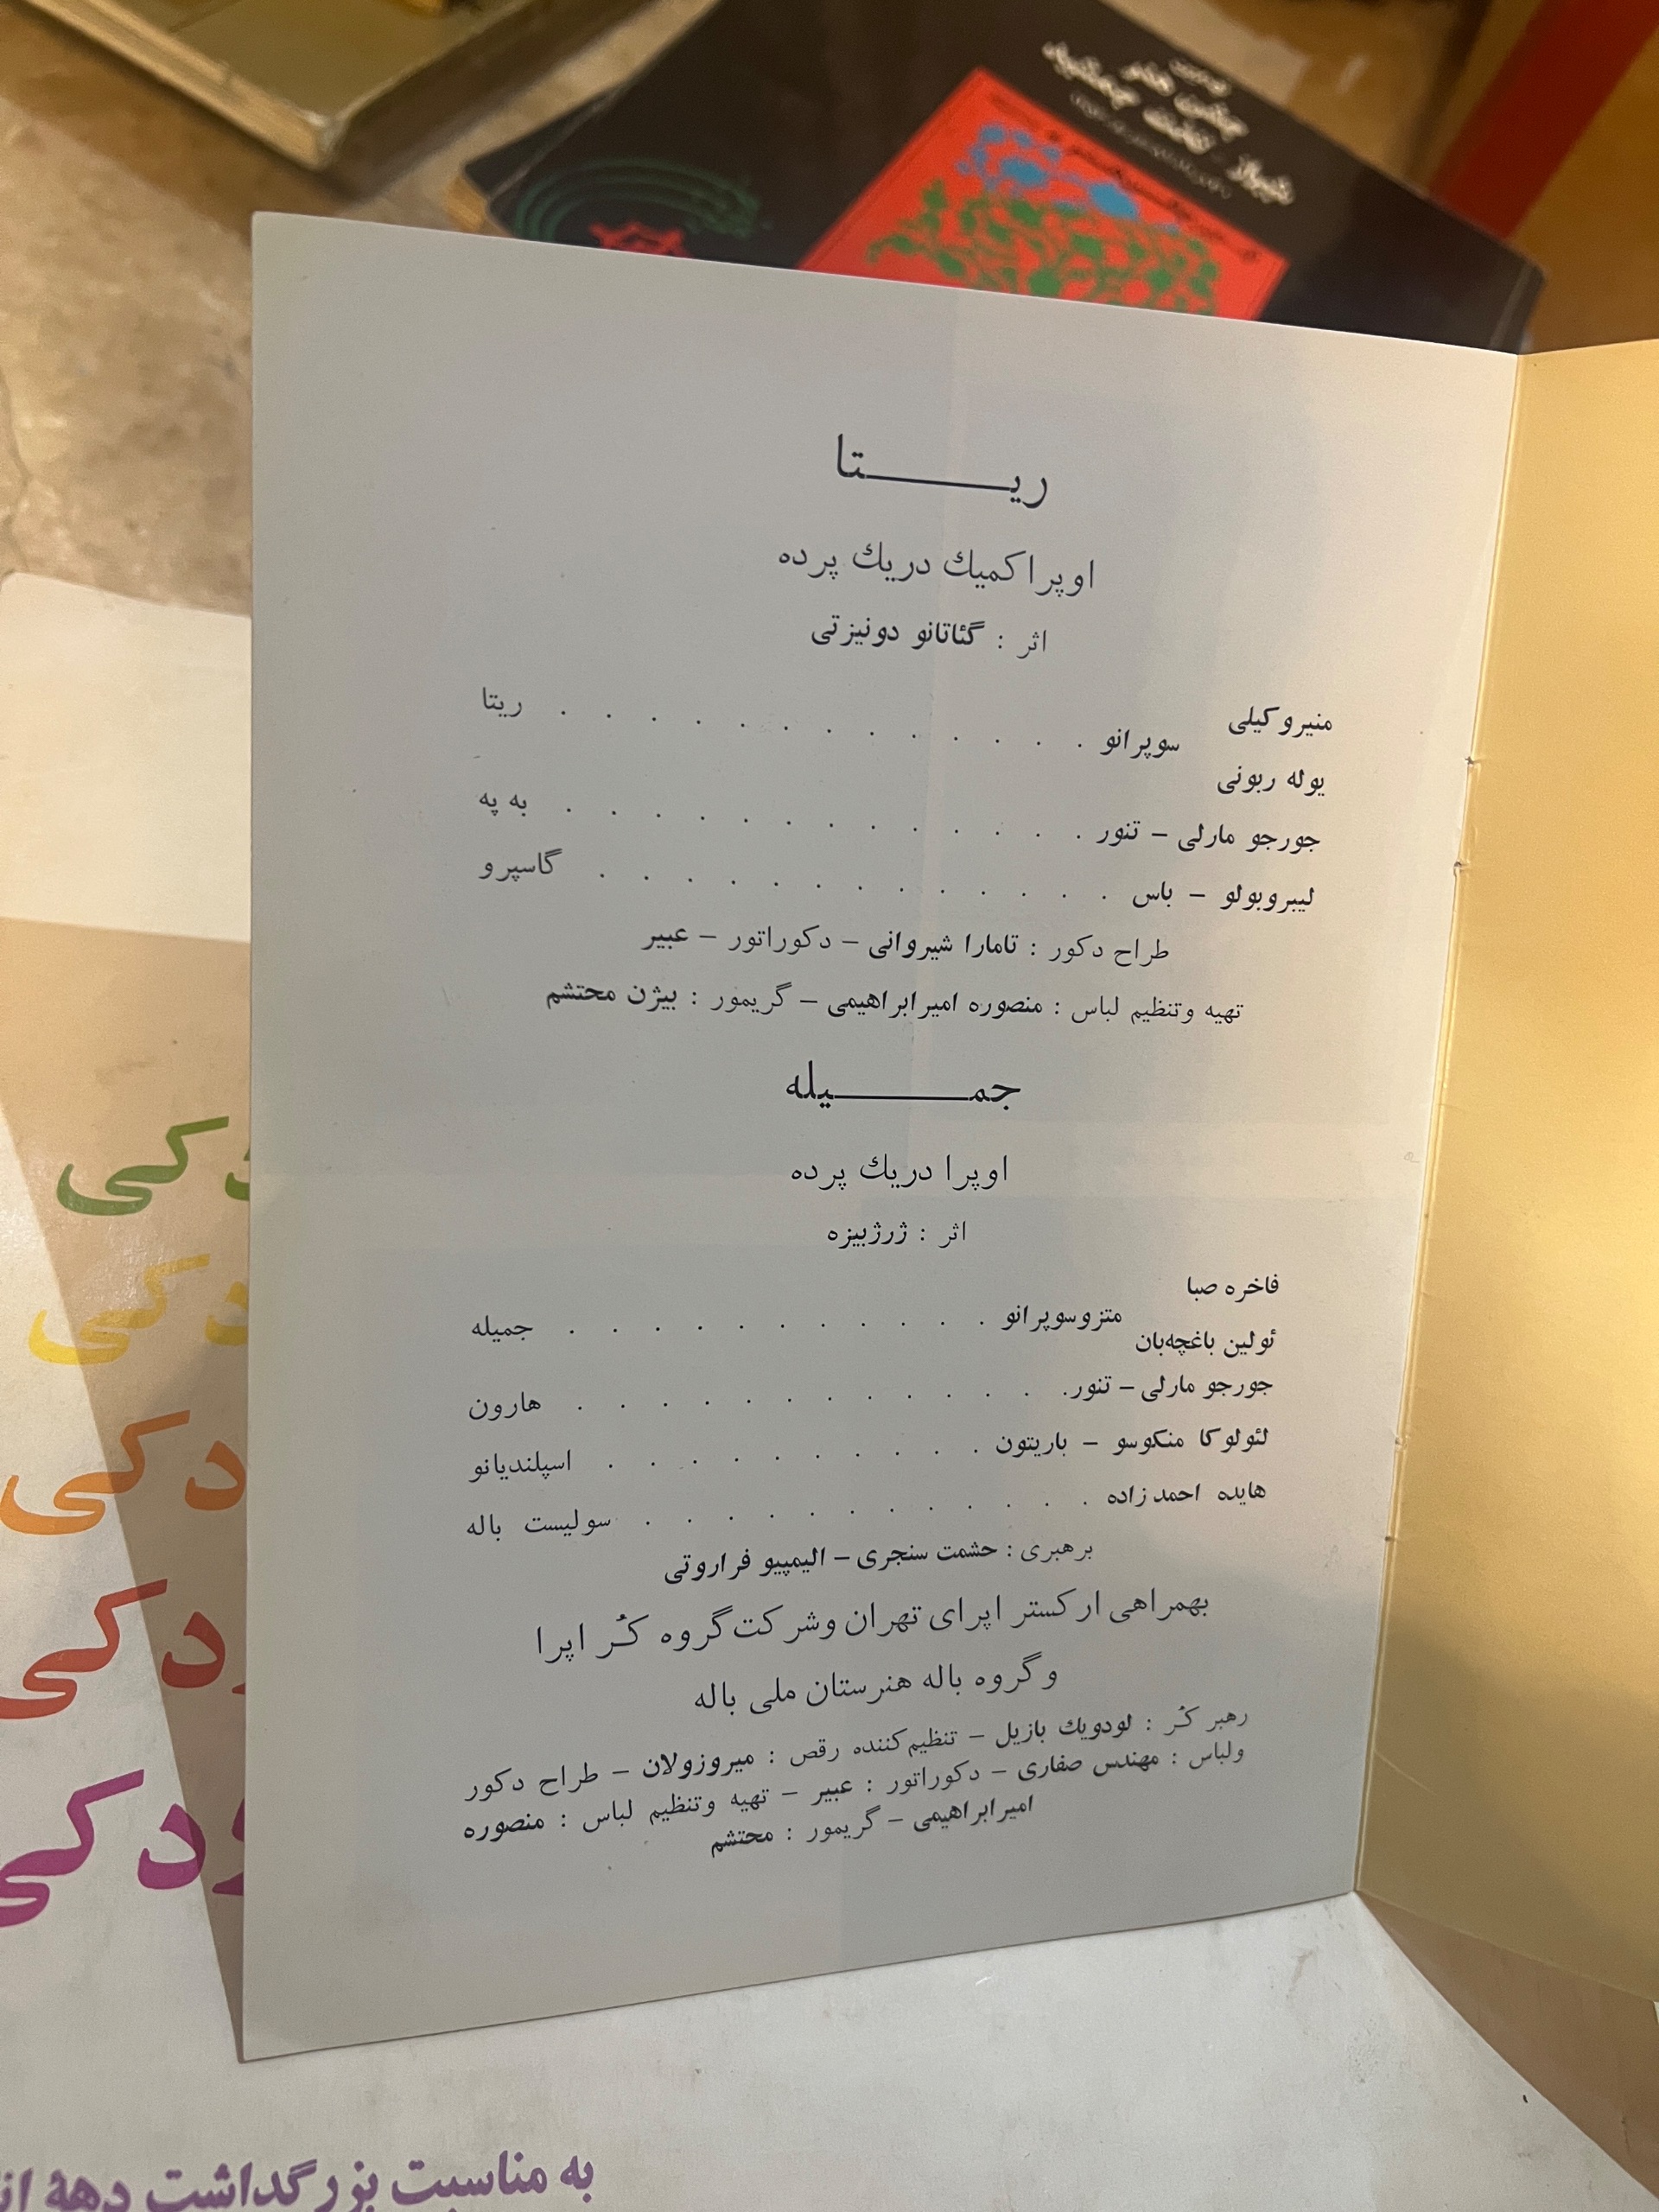 جشن هنر
شیراز - تخت جمشید
ریتا
اوپراکمیك دریك پرده
اثر : گئاتانو دونیزتی
منیروکیلی
سوپرانو . . . . . . . . . . . . . ریتا
یوله ربونی
جورجو مارلی – تنور . . . . . . . . . . . . . به په
لیبروبولو – باس . . . . . . . . . . . . . گاسپرو
طراح دکور : تامارا شیروانی – دکوراتور – عبیر
تهیه وتنظیم لباس : منصوره امیرابراهیمی – گریمور : بیژن محتشم
جمیله
اوپرا دریك پرده
اثر : ژرژبیزه
فاخره صبا
متزوسوپرانو . . . . . . . . . . . جمیله
ئولین باغچه‌بان
جورجو مارلی – تنور . . . . . . . . . . . . هارون
لئولوکا منکوسو – باریتون . . . . . . . . . . اسپلندیانو
هایده احمدزاده . . . . . . . . . . . . سولیست باله
برهبری : حشمت سنجری – الیمپیو فراروتی
بهمراهی ارکستر اپرای تهران وشرکت گروه کُر اپرا
وگروه باله هنرستان ملی باله
رهبر کُر : لودویك بازیل – تنظیم‌کننده رقص : میروزولان – طراح دکور
ولباس : مهندس صفاری – دکوراتور : عبیر – تهیه وتنظیم لباس : منصوره
امیرابراهیمی – گریمور : محتشم
به مناسبت بزرگداشت دههٔ